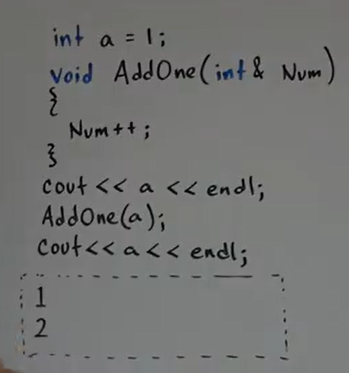 int a = 1;
void AddOne(int& Num)
{
Num++;
}
cout << a << endl;
AddOne(a);
cout<< a << endl;
1
2